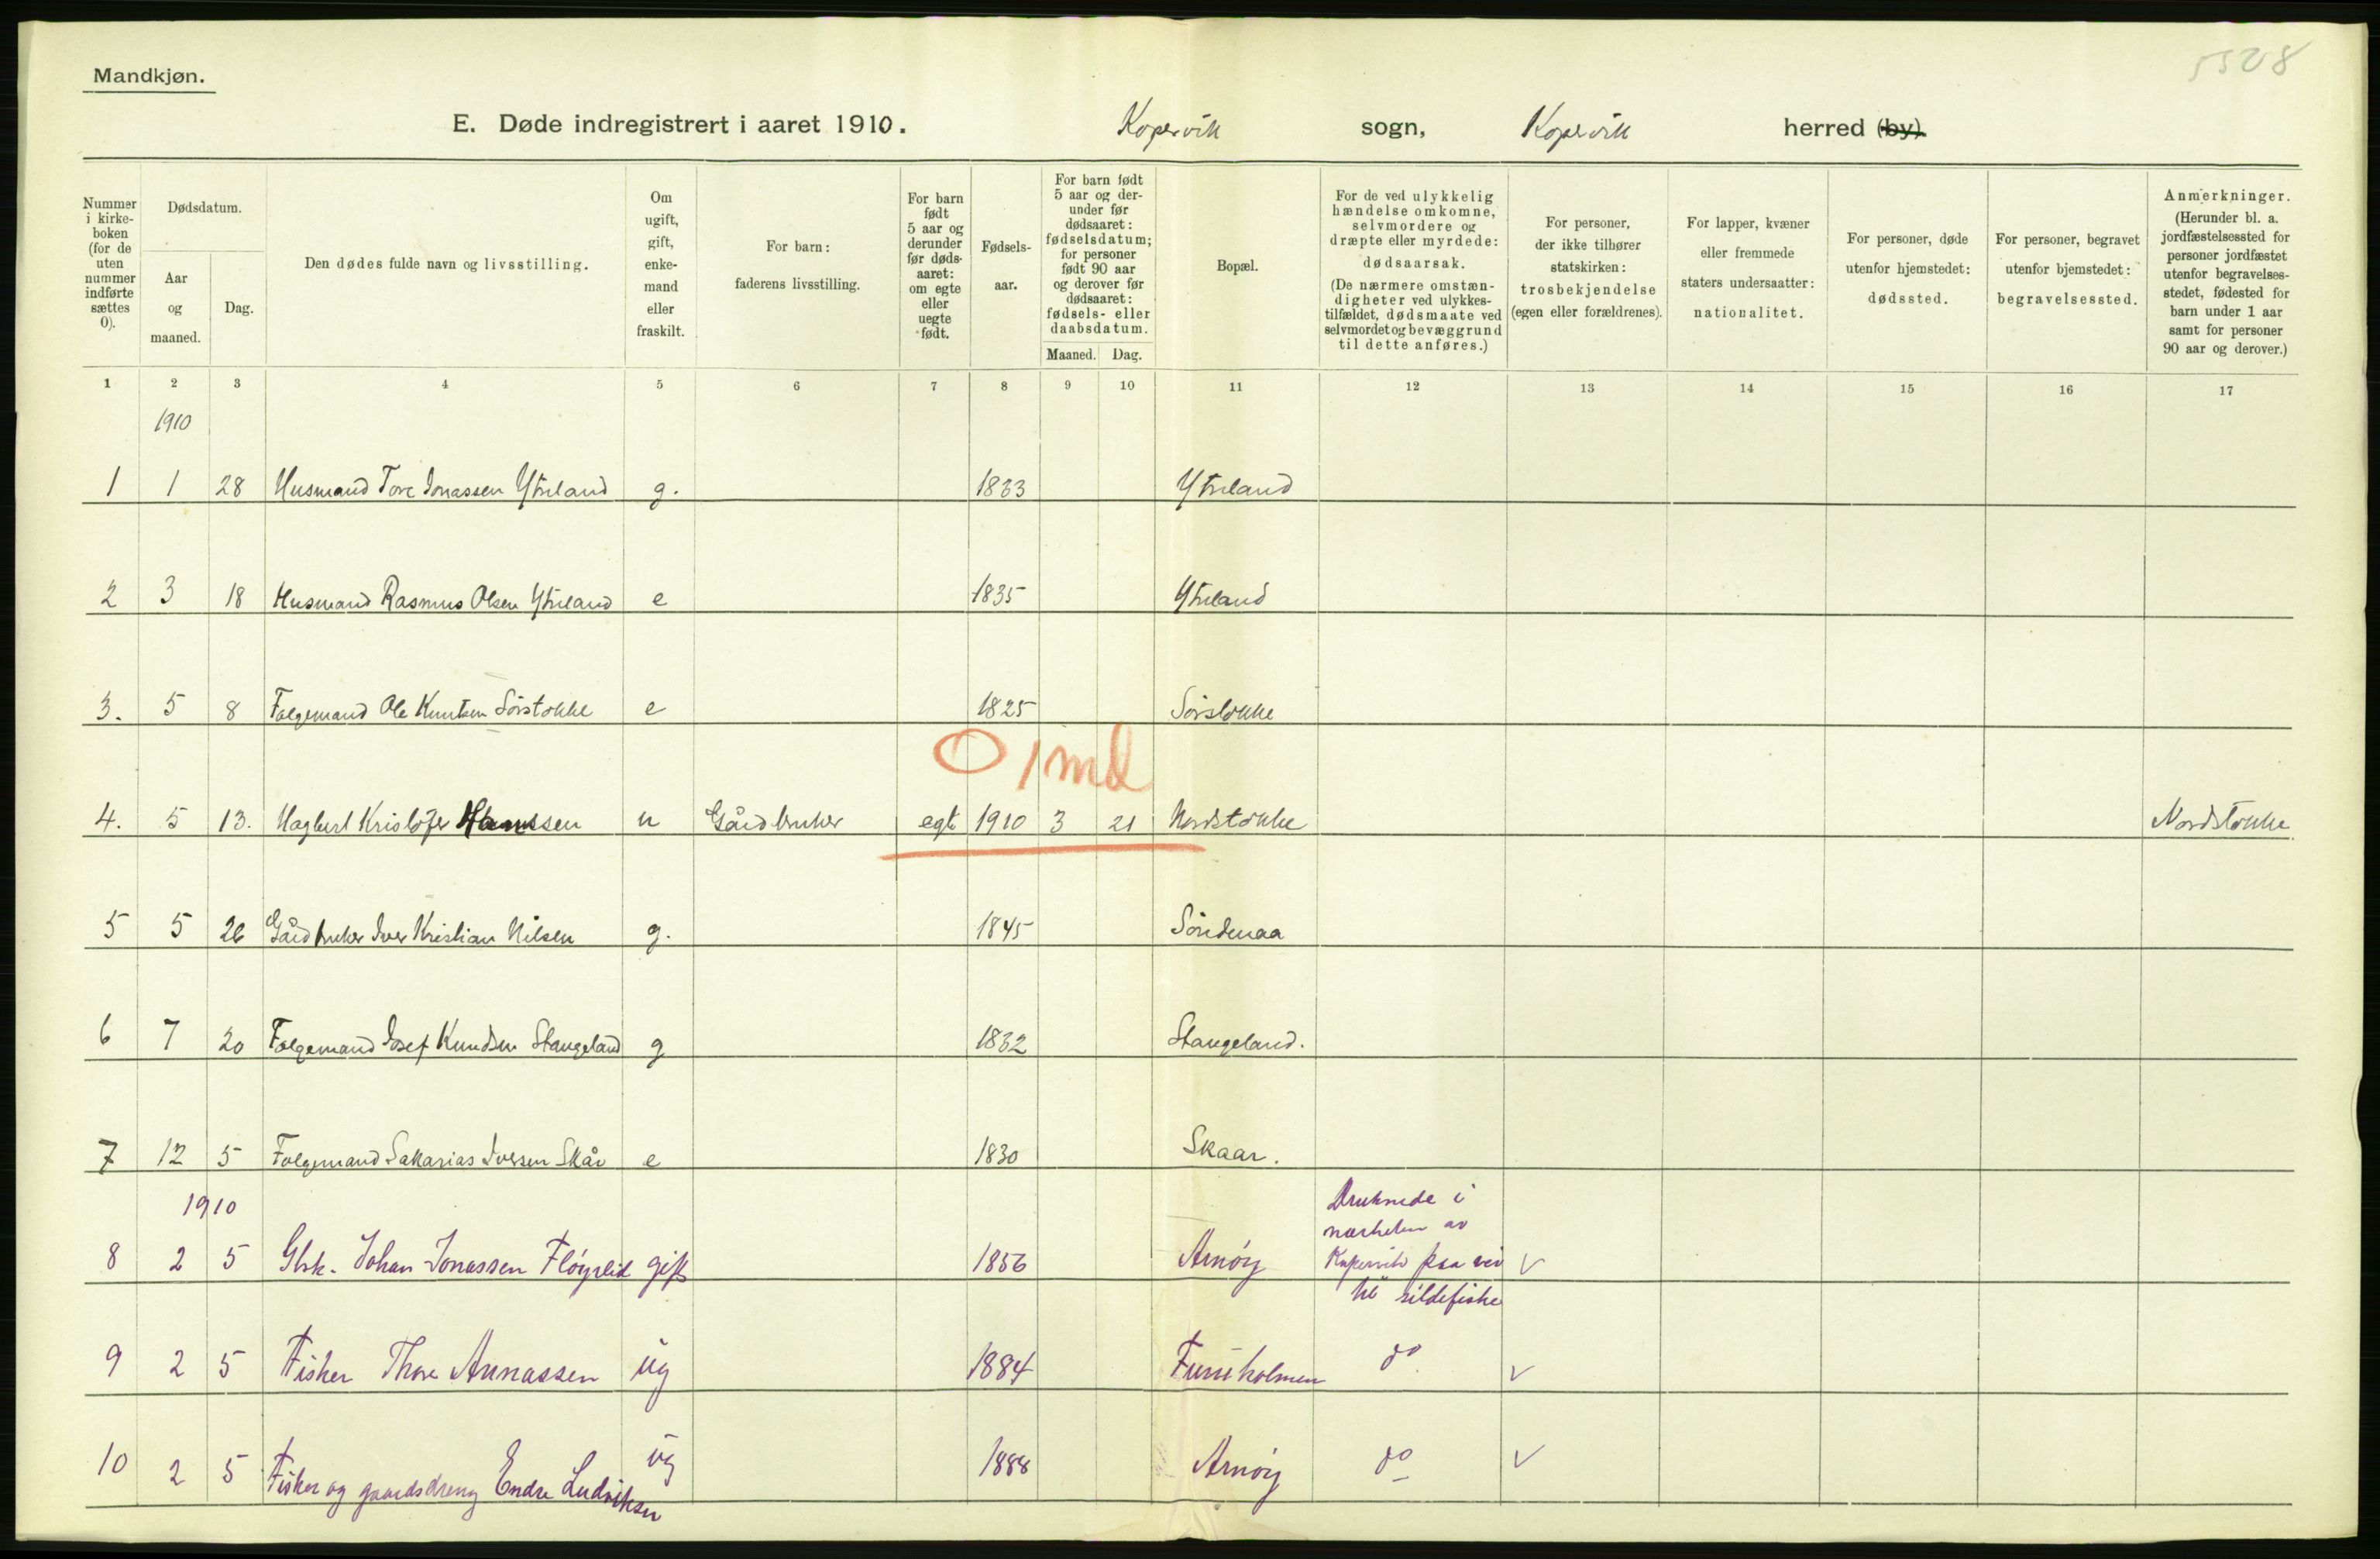 5528
Mandkjøn.
E. Døde indregistrert i aaret 1910. Kopervik sogn, Kopervik herred (by).
Nummer i kirke-boken (for de uten nummer indførte sættes 0).
Dødsdatum.
Aar og maaned.
Dag.
Den dødes fulde navn og livsstilling.
Om ugift, gift, enke-mand eller fraskilt.
For barn: faderens livsstilling.
For barn født 5 aar og derunder før døds-aaret: om egte eller uegte født.
Fødsels-aar.
For barn født 5 aar og der-under før dødsaaret: fødselsdatum; for personer født 90 aar og derover før dødsaaret: fødsels- eller daabsdatum.
Maaned. Dag.
Bopæl.
For de ved ulykkelig hændelse omkomne, selvmordere og dræpte eller myrdede: dødsaarsak. (De nærmere omstæn-digheter ved ulykkes-tilfældet, dødsmaate ved selvmordet og bevæggrund til dette anføres.)
For personer, der ikke tilhører statskirken: trosbekjendelse (egen eller forældrenes).
For lapper, kvæner eller fremmede staters undersaatter: nationalitet.
For personer, døde utenfor hjemstedet: dødssted.
For personer, begravet utenfor hjemstedet: begravelsessted.
Anmerkninger. (Herunder bl. a. jordfæstelsessted for personer jordfæstet utenfor begravelses-stedet, fødested for barn under 1 aar samt for personer 90 aar og derover.)
1 2 3 4 5 6 7 8 9 10 11 12 13 14 15 16 17
1910
1 1 28 Husmand Tore Jonassen Ytreland g. 1833 Ytreland
2 3 18 Husmand Rasmus Olsen Ytreland e 1835 Ytreland
3. 5 8 Følgemand Ole Knutsen Sørstokke e 1825 Sørstokke
0 1 md
4. 5 13. Hagbert Kristofer Hanssen u Gårdbruker egte 1910 3 21 Nordstokke Nordstokke
5 5 26 Gårdbruker Iver Kristian Nilsen g. 1845 Søndenaa
6 7 20 Følgemand Josef Knudsen Stangeland g 1832 Stangeland.
7 12 5 Følgemand Sakarias Iversen Skår e 1830 Skaar.
1910
8 2 5 Gbk. Johan Jonassen Fløyrlid gift 1856 Arnøy Druknede i nærheten av Kopervik paa vei til sildefiske v
9 2 5 Fisker Thore Annassen ug 1884 Fureholmen do v
10 2 5 Fisker og gaardsdreng Endre Ludviksen ug 1888 Arnøy do v